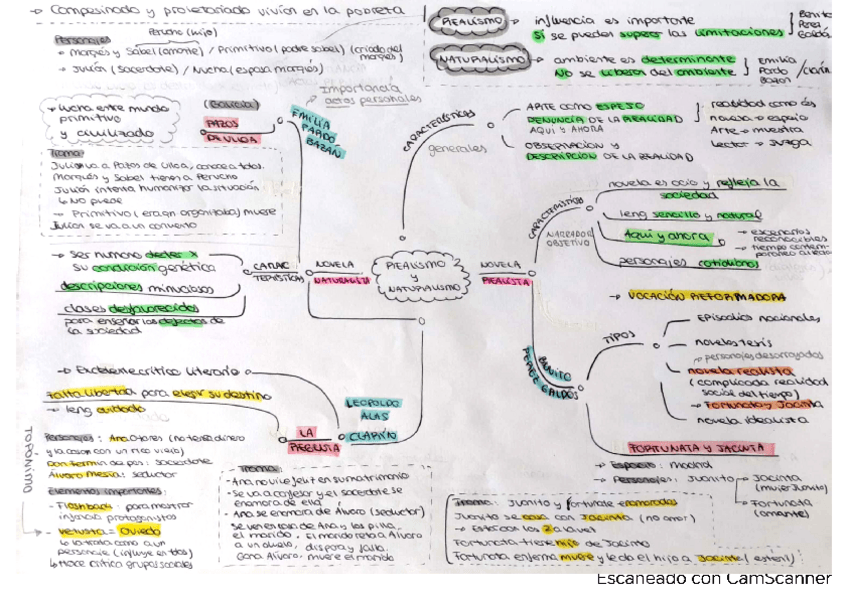 → Campesinado y proletariado vivían en la pobreza
Perucho (hijo)
Personajes
- Marqués y Sabel (amante) / Primitivo (padre Sabel) (criado del marqués)
- Julián (sacerdote) / Nucha (esposa marqués)
REALISMO → influencia es importante
SI se puedes superar las limitaciones } Benito Perez Galdós
NATURALISMO → ambiente es determinante
NO se liberan del ambiente } Emilia Pardo Bazán / Clarín
→ lucha entre mundo
primitivo
y civilizado
(Galicia)
PAZOS
DE ULLOA
Importancia
actos personales
EMILIA
PARDO
BAZÁN
Trama:
Julián va a Pazos de Ulloa, conoce a todos.
Marqués y Sabel tienen a Perucho
Julián intenta humanizar la situación
↳ No puede
→ Primitivo (eran organizada) muere
Julián se va a un convento
CARACTERÍSTICAS
generales
ARTE como ESPEJO
DENUNCIA DE LA REALIDAD
AQUÍ Y AHORA
OBSERVACIÓN Y
DESCRIPCIÓN DE LA REALIDAD
realidad como es
novela → espejo
Arte → muestra
Lector → Juzga
→ ser humano
su condición genética
descripciones minuciosas
clases desfavorecidas
para enseñar los defectos de
la sociedad
CARAC
TERÍSTICAS
NOVELA
NATURALISTA
REALISMO
Y
NATURALISMO
NOVELA
REALISTA
CARACTERÍSTICAS
NARRADOR
OBJETIVO
novela es ocio y refleja la
sociedad
leng sencillo y natural
Aquí y ahora
→ escenarios
reconocibles
→ tiempo contem-
poráneo
personajes cotidianos
→ VOCACIÓN REFORMADORA
BENITO
PEREZ GALDÓS
TIPOS
Episodios nacionales
novelas tesis
→ personajes desarrayados
novela realista
(complicada realidad
social del tiempo)
→ Fortunata y Jacinta
novela idealista
→ Excelente crítico literario
Falta libertad para elegir su destino
→ leng cuidado
LEOPOLDO
ALAS
CLARÍN
LA
REGENTA
Personajes: Ana Ozores (no tenía dinero
y la casan con un rico viejo)
Don Fermín de pas: sacerdote
Álvaro Mesía: seductor
Elementos importantes:
- Flashback: para mostrar
infancia protagonistas
- Vetusta = Oviedo
↳ la trata como a un
personaje (influye en tdos)
↳ Hace crítica grupos sociales
TOPÓNIMO
Trama:
- Ana no vive feliz en su matrimonio
- Se va a confesar y el sacerdote se
enamora de ella
- Ana se enamora de Álvaro (seductor)
Se ven en casa de Ana y los pilla
el marido. El marido reta a Álvaro
a un duelo, dispara y falla.
Gana Álvaro: muere el marido
FORTUNATA Y JACINTA
→ Espacio: Madrid
→ Personajes: Juanito
→ Jacinta
(mujer Juanito)
→ Fortunata
(amante)
Trama: Juanito y fortunata enamorados
Juanito se casa con Jacinta (no amor)
→ Esta con las 2 a la vez
Fortunata tiene hijo de Jacinto
Fortunata enferma muere y le da el hijo a Jacinta (esteril)
Escaneado con CamScanner